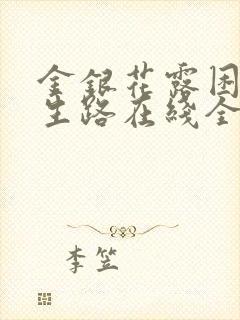 金銀花露困
生路在綫全
李笠